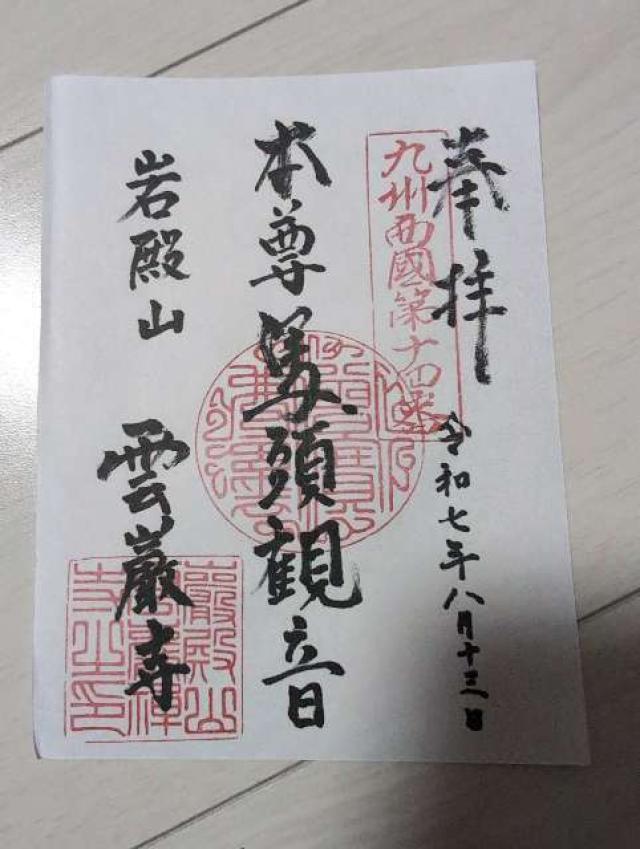 奉拝
九州西國第十四番
令和七年八月十三日
本尊馬頭観音
岩殿山
雲巌寺